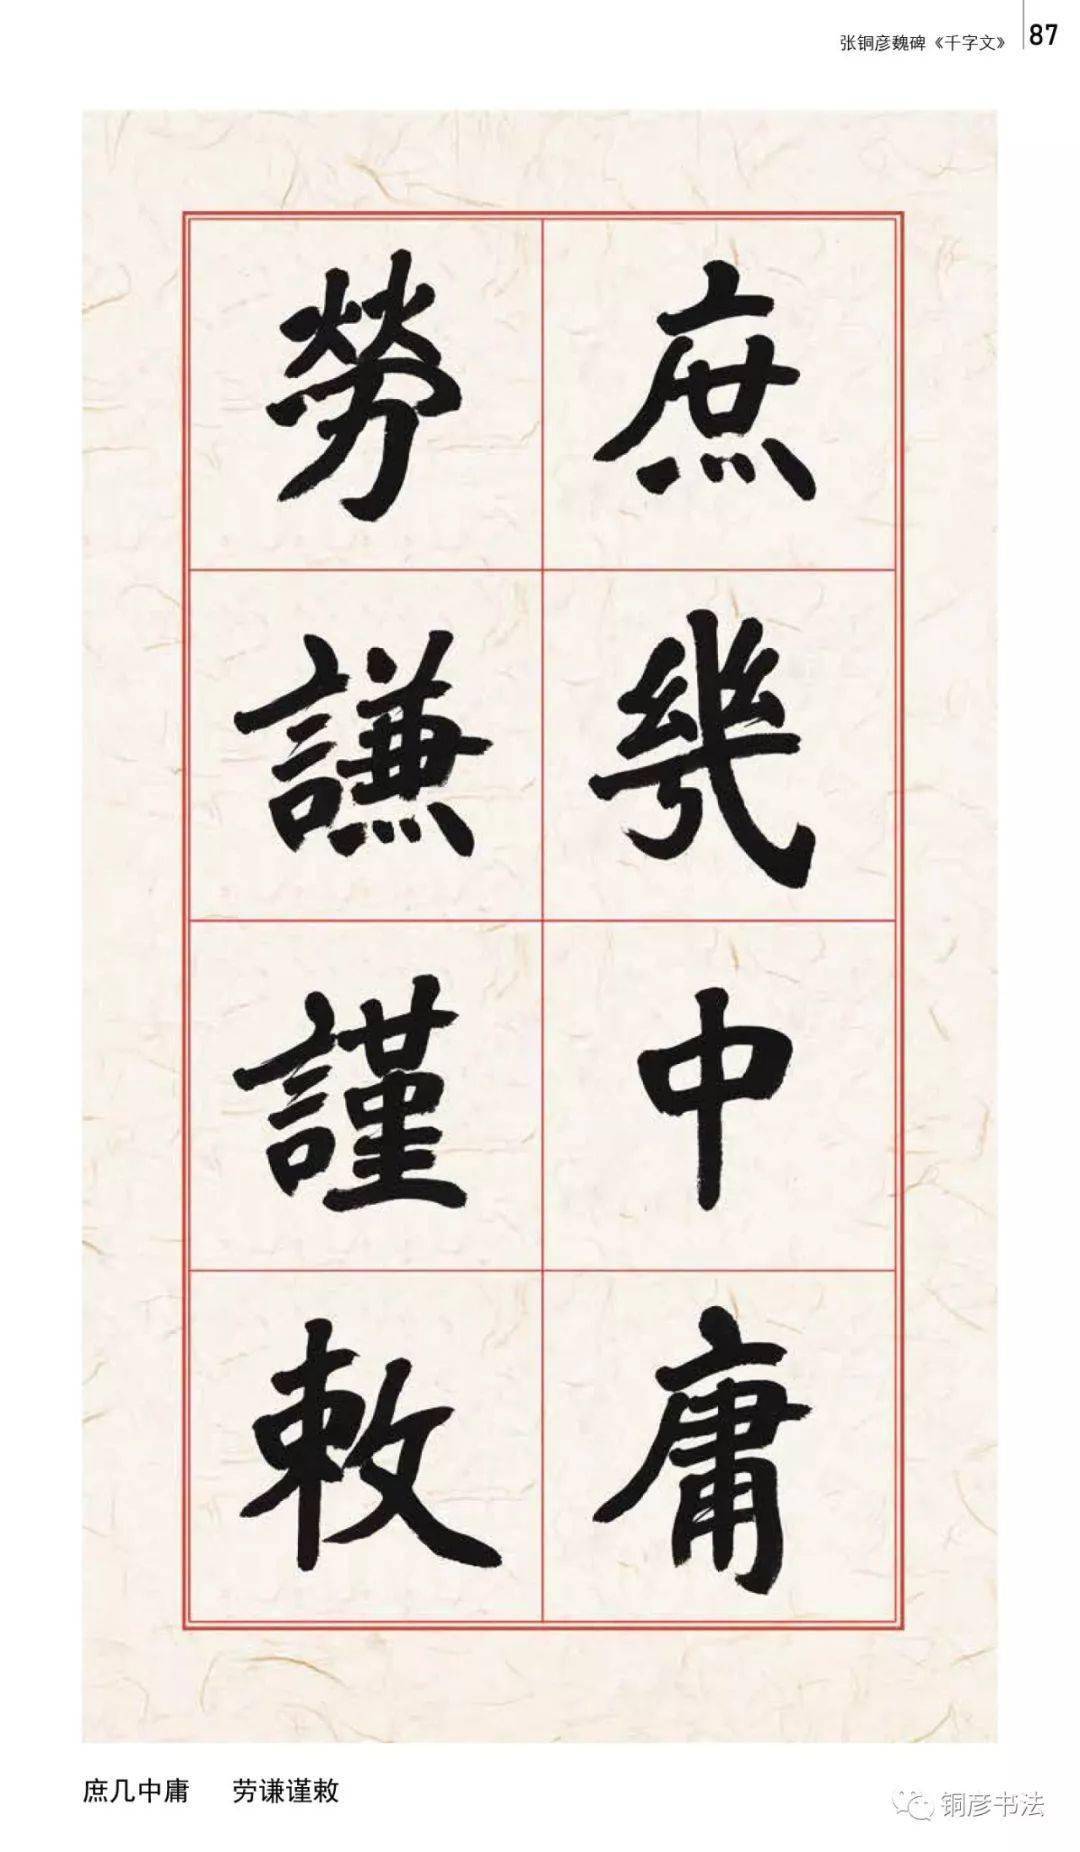 张铜彦魏碑《千字文》 87
庶幾中庸
勞謙謹敕
庶几中庸 劳谦谨敕
铜彦书法